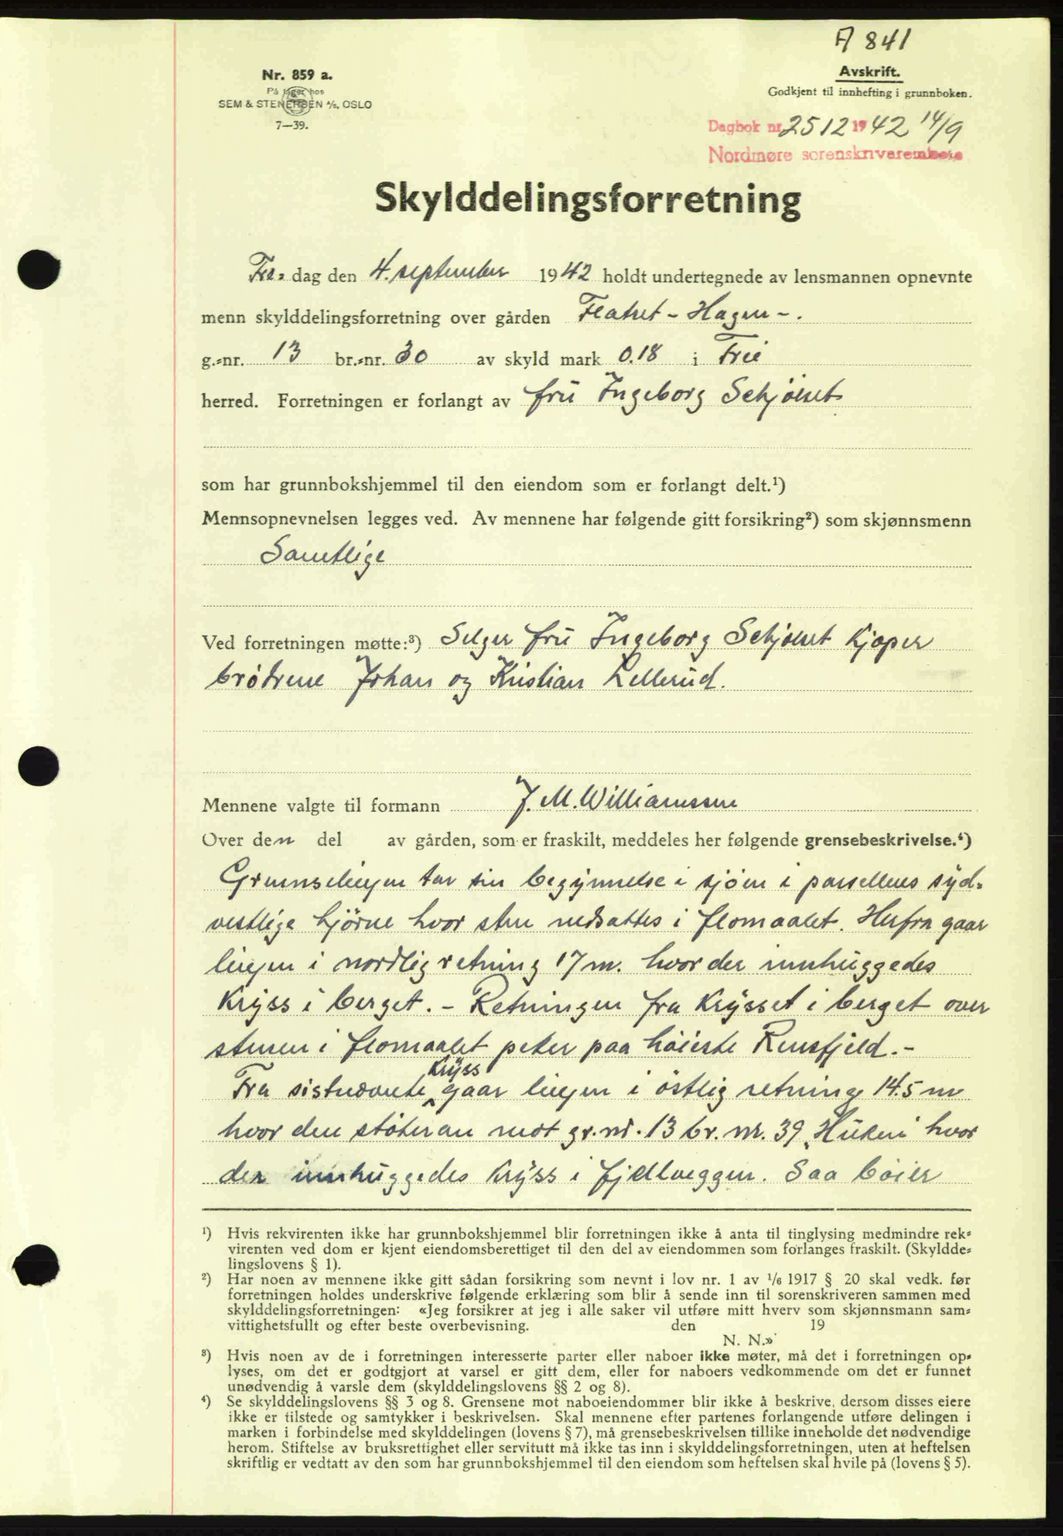 A 841
Nr. 859 a.
På lager hos
SEM & STENERSEN A/S, OSLO
7—39.
Avskrift.
Godkjent til innhefting i grunnboken.
Dagbok nr. 2512 1942 14/9
Nordmøre sorenskriverembete
Skylddelingsforretning
Fre- dag den 4. september 1942 holdt undertegnede av lensmannen opnevnte
menn skylddelingsforretning over gården Flatset - Hagen -.
g.-nr. 13 br.-nr. 30 av skyld mark 0.18 i Frei
herred. Forretningen er forlangt av fru Ingeborg Schjølset
som har grunnbokshjemmel til den eiendom som er forlangt delt.¹)
Mennsopnevnelsen legges ved. Av mennene har følgende gitt forsikring²) som skjønnsmenn
Samtlige
Ved forretningen møtte:³) Selger fru Ingeborg Schjølset Kjøper
brødrene Johan og Kristian Lellerud.
Mennene valgte til formann J. M. Williamssen
Over den del av gården, som er fraskilt, meddeles her følgende grensebeskrivelse.⁴)
Grenselinjen tar sin begynnelse i sjøen i parsellens syd-
vestlige hjørne hvor sten nedsattes i flomaalet. Herfra gaar
linjen i nordlig retning 17 m. hvor der innhuggedes
Kryss i berget. - Retningen fra Krysset i berget over
stenen i flomaalet peker paa høieste Rensfjeld. -
Fra sistnævnte Kryss gaar linjen i østlig retning 14.5 m
hvor den støter an mot gr. nr. 13 br. nr. 39 „Huken" hvor
der innhuggedes Kryss i fjellveggen. Saa bøier
¹) Hvis rekvirenten ikke har grunnbokshjemmel blir forretningen ikke å anta til tinglysing medmindre rek-
virenten ved dom er kjent eiendomsberettiget til den del av eiendommen som forlanges fraskilt. (Skyldde-
lingslovens § 1).
²) Har noen av mennene ikke gitt sådan forsikring som nevnt i lov nr. 1 av 1/6 1917 § 20 skal vedk. før
forretningen holdes underskrive følgende erklæring som blir å sende inn til sorenskriveren sammen med
skylddelingsforretningen: «Jeg forsikrer at jeg i alle saker vil utføre mitt hverv som skjønnsmann sam-
vittighetsfullt og efter beste overbevisning. den 19
N. N.»
³) Hvis noen av de i forretningen interesserte parter eller naboer ikke møter, må det i forretningen op-
lyses, om det er godtgjort at varsel er gitt dem, eller for naboers vedkommende om det er funnet
unødvendig å varsle dem (skylddelingslovens §§ 2 og 8).
⁴) Se skylddelingslovens §§ 3 og 8. Grensene mot naboeiendommer blir ikke å beskrive, dersom disses eiere
ikke er tilstede og samtykker i beskrivelsen. Skal mennene efter partenes forlangende utføre delingen i
marken i forbindelse med skylddelingen (lovens § 7), må grensebeskrivelsen tillike inneholde det nødvendige
herom. Stiftelse av bruksrettighet eller servitutt må ikke tas inn i skylddelingsforretningen, uten at heftelsen
skriftlig er vedtatt av den som har grunnbokshjemmel til den eiendom som heftelsen skal hvile på (lovens § 5).